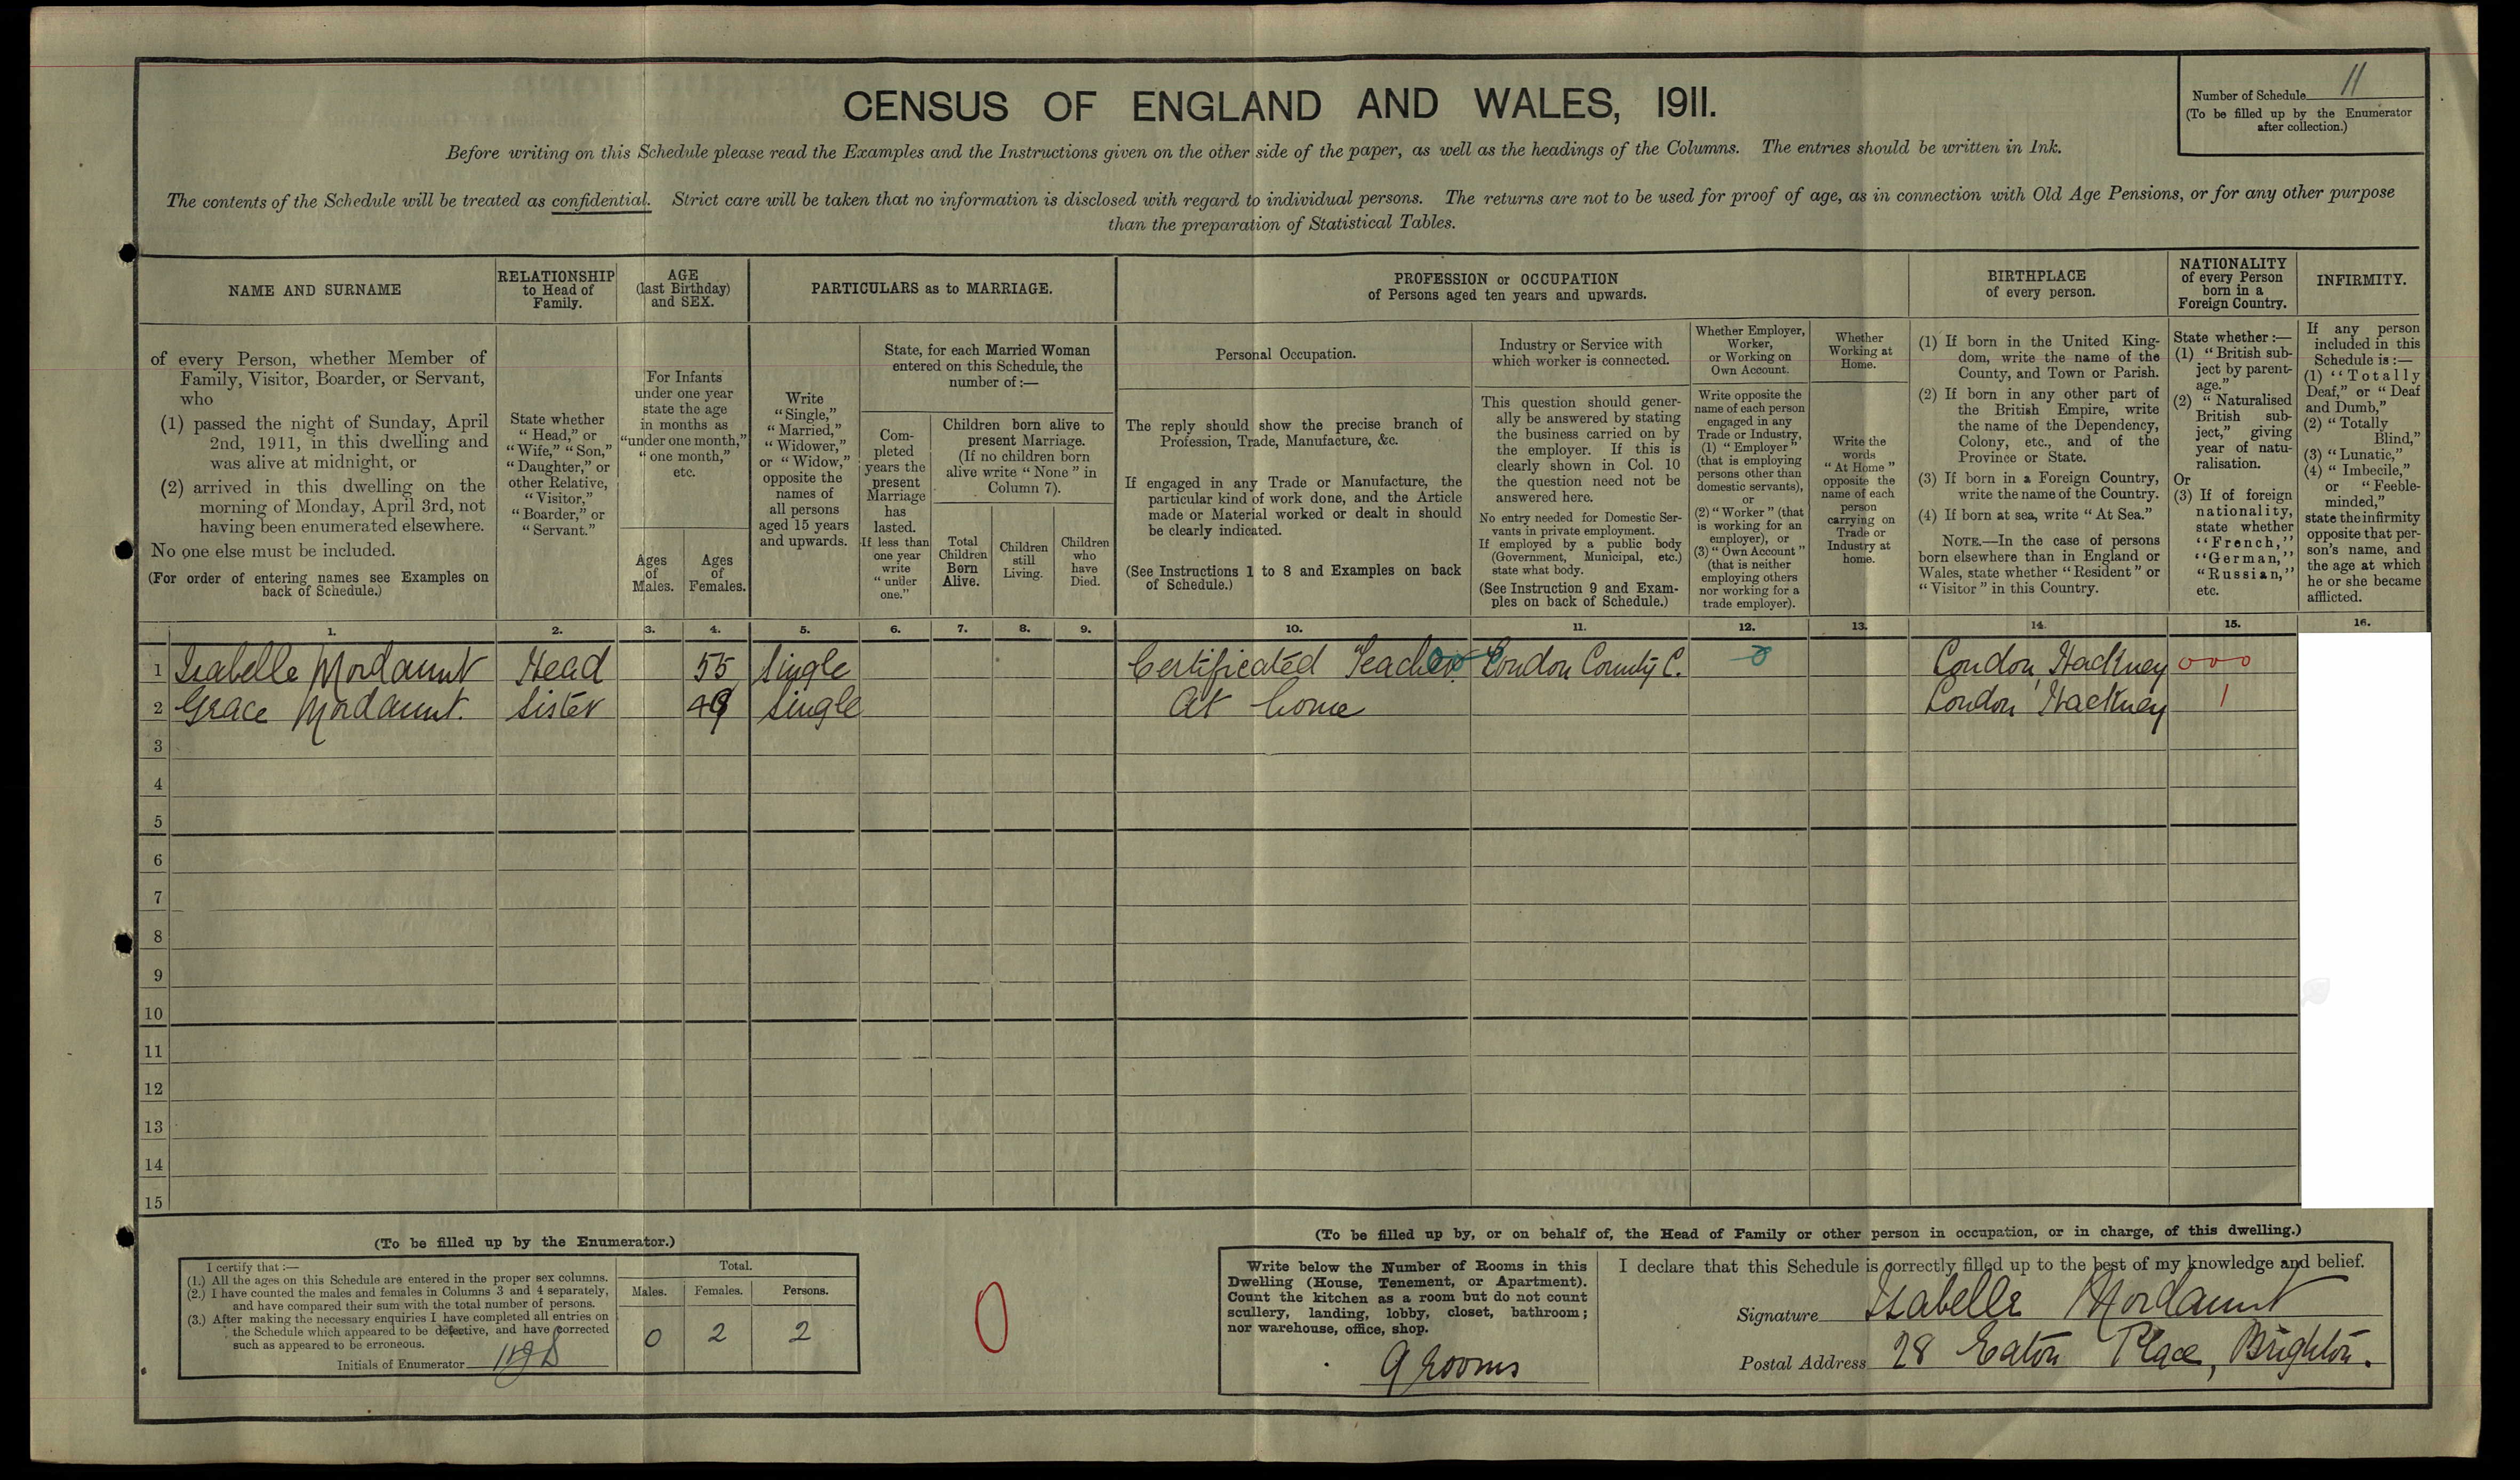 Number of Schedule 11
(To be filled up by the Enumerator
after collection.)
CENSUS OF ENGLAND AND WALES, 1911.
Before writing on this Schedule please read the Examples and the Instructions given on the other side of the paper, as well as the headings of the Columns. The entries should be written in Ink.
The contents of the Schedule will be treated as confidential. Strict care will be taken that no information is disclosed with regard to individual persons. The returns are not to be used for proof of age, as in connection with Old Age Pensions, or for any other purpose
than the preparation of Statistical Tables.
NAME AND SURNAME
of every Person, whether Member of
Family, Visitor, Boarder, or Servant,
who
(1) passed the night of Sunday, April
2nd, 1911, in this dwelling and
was alive at midnight, or
(2) arrived in this dwelling on the
morning of Monday, April 3rd, not
having been enumerated elsewhere.
No one else must be included.
(For order of entering names see Examples on
back of Schedule.)
RELATIONSHIP
to Head of
Family.
State whether
"Head," or
"Wife," "Son,"
"Daughter," or
other Relative,
"Visitor,"
"Boarder," or
"Servant."
AGE
(last Birthday)
and SEX.
For Infants
under one year
state the age
in months as
"under one month,"
"one month,"
etc.
Ages
of
Males.
Ages
of
Females.
PARTICULARS as to MARRIAGE.
Write
"Single,"
"Married,"
"Widower,"
or "Widow,"
opposite the
names of
all persons
aged 15 years
and upwards.
State, for each Married Woman
entered on this Schedule, the
number of:—
Com-
pleted
years the
present
Marriage
has
lasted.
If less than
one year
write
"under
one."
Children born alive to
present Marriage.
(If no children born
alive write "None" in
Column 7).
Total
Children
Born
Alive.
Children
still
Living.
Children
who
have
Died.
PROFESSION or OCCUPATION
of Persons aged ten years and upwards.
Personal Occupation.
The reply should show the precise branch of
Profession, Trade, Manufacture, &c.
If engaged in any Trade or Manufacture, the
particular kind of work done, and the Article
made or Material worked or dealt in should
be clearly indicated.
(See Instructions 1 to 8 and Examples on back
of Schedule.)
Industry or Service with
which worker is connected.
This question should gener-
ally be answered by stating
the business carried on by
the employer. If this is
clearly shown in Col. 10
the question need not be
answered here.
No entry needed for Domestic Ser-
vants in private employment.
If employed by a public body
(Government, Municipal, etc.)
state what body.
(See Instruction 9 and Exam-
ples on back of Schedule.)
Whether Employer,
Worker,
or Working on
Own Account.
Write opposite the
name of each person
engaged in any
Trade or Industry,
(1) "Employer"
(that is employing
persons other than
domestic servants),
or
(2) "Worker" (that
is working for an
employer), or
(3) "Own Account"
(that is neither
employing others
nor working for a
trade employer).
Whether
Working at
Home.
Write the
words
"At Home"
opposite the
name of each
person
carrying on
Trade or
Industry at
home.
BIRTHPLACE
of every person.
(1) If born in the United King-
dom, write the name of the
County, and Town or Parish.
(2) If born in any other part of
the British Empire, write
the name of the Dependency,
Colony, etc., and of the
Province or State.
(3) If born in a Foreign Country,
write the name of the Country.
(4) If born at sea, write "At Sea."
NOTE.—In the case of persons
born elsewhere than in England or
Wales, state whether "Resident" or
"Visitor" in this Country.
NATIONALITY
of every Person
born in a
Foreign Country.
State whether:—
(1) "British sub-
ject by parent-
age."
(2) "Naturalised
British sub-
ject," giving
year of natu-
ralisation.
Or
(3) If of foreign
nationality,
state whether
"French,"
"German,"
"Russian,"
etc.
INFIRMITY.
If any person
included in this
Schedule is:—
(1) "Totally
Deaf," or "Deaf
and Dumb,"
(2) "Totally
Blind,"
(3) "Lunatic,"
(4) "Imbecile,"
or "Feeble-
minded,"
state the infirmity
opposite that per-
son's name, and
the age at which
he or she became
afflicted.
1. 2. 3. 4. 5. 6. 7. 8. 9. 10. 11. 12. 13. 14. 15. 16.
1 Isabelle Mordaunt Head 55 Single Certificated Teacher London County C. London, Hackney 000
2 Grace Mordaunt. Sister 49 Single At home London, Hackney 1
3
4
5
6
7
8
9
10
11
12
13
14
15
(To be filled up by the Enumerator.)
I certify that:—
(1.) All the ages on this Schedule are entered in the proper sex columns.
(2.) I have counted the males and females in Columns 3 and 4 separately,
and have compared their sum with the total number of persons.
(3.) After making the necessary enquiries I have completed all entries on
the Schedule which appeared to be defective, and have corrected
such as appeared to be erroneous.
Initials of Enumerator
Total.
Males. Females. Persons.
0 2 2
0
(To be filled up by, or on behalf of, the Head of Family or other person in occupation, or in charge, of this dwelling.)
Write below the Number of Rooms in this
Dwelling (House, Tenement, or Apartment).
Count the kitchen as a room but do not count
scullery, landing, lobby, closet, bathroom;
nor warehouse, office, shop.
9 rooms
I declare that this Schedule is correctly filled up to the best of my knowledge and belief.
Signature Isabelle Mordaunt
Postal Address 28 Eaton Place, Brighton.